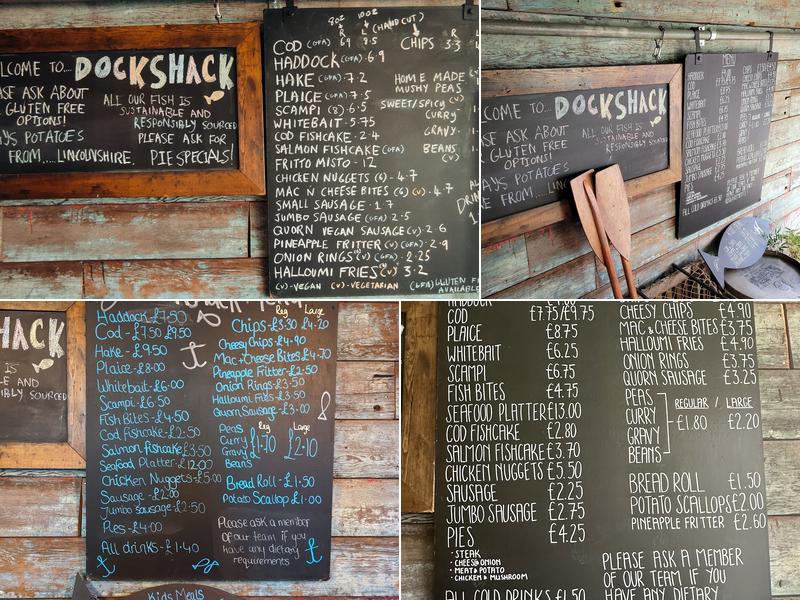 LCOME TO... DOCKSHACK
SE ASK ABOUT
GLUTEN FREE
OPTIONS!
AYS POTATOES
FROM.... LINCOLNSHIRE.
ALL OUR FISH IS
SUSTAINABLE AND
RESPONSIBLY SOURCED
PLEASE ASK FOR
PIE SPECIALS!
8oz 10oz
R L (HAND CUT)
COD (GFA) 6.9 8.5
HADDOCK (GFA) 6.9
HAKE (GFA) 7.2
PLAICE (GFA) 7.5
SCAMPI (8) 6.5
WHITEBAIT 5.75
COD FISHCAKE 2.4
SALMON FISHCAKE (GFA)
FRITTO MISTO - 12
CHICKEN NUGGETS (6) - 4.7
MAC N CHEESE BITES (6) (V) - 4.7
SMALL SAUSAGE - 1.7
JUMBO SAUSAGE (GFA) 2.5
QUORN VEGAN SAUSAGE (V) - 2.6
PINEAPPLE FRITTER (V) (GFA) - 2.9
ONION RINGS (V) (GFA) - 2.25
HALLOUMI FRIES (V) 3.2
(V) - VEGAN (V) - VEGETARIAN (GFA) GLUTEN F
AVAILABLE
R
CHIPS 3.3
HOME MADE
MUSHY PEAS
SWEET/SPICY (V)
CURRY
GRAVY
BEANS
(V)
COME TO... DOCKSHACK
SE ASK ABOUT
GLUTEN FREE
OPTIONS!
AYS POTATOES
E FROM.... LINC
ALL OUR FISH IS
SUSTAINABLE AND
RESPONSIBLY SOURC
MENU
HADDOCK
COD
PLAICE
WHITEBAIT
SCAMPI
FISH BITES
SEAFOOD PLATTER
COD FISHCAKE
SALMON FISHCAKE
CHICKEN NUGGETS
SAUSAGE
JUMBO SAUSAGE
PIES
ALL COLD DRINKS £1.50
HACK
IS
E AND
LY SOURCED
Reg Large
Haddock-£7.50
Cod-£7.50 £9.50
Hake-£9.50
Plaice-£8.00
Whitebait-£6.00
Scampi-£6.50
Fish Bites-£4.50
Cod Fishcake-£2.50
Salmon fishcake £3.50
Seafood Platter-£12.00
Chicken Nuggets-£5.00
Sausage-£2.00
Jumbo sausage-£2.50
Pies-£4.00
All drinks-£1.40
Chips-£3.30 £4.20
Cheesy Chips-£4.90
Mac+Cheese Bites-£4.70
Pineapple Fritter-£2.50
Onion Rings-£3.50
Halloumi Fries-£3.50
Quorn Sausage-£3.00
Reg Large
Peas
Curry
Gravy
Beans
£1.70 £2.10
Bread Roll-£1.50
Potato Scallop £1.00
Please ask a member
of our team if you
have any dietary
requirements
Kids Meals
HADDOCK
COD £7.75/£9.75
PLAICE £8.75
WHITEBAIT £6.25
SCAMPI £6.75
FISH BITES £4.75
SEAFOOD PLATTER £13.00
COD FISHCAKE £2.80
SALMON FISHCAKE £3.70
CHICKEN NUGGETS £5.50
SAUSAGE £2.25
JUMBO SAUSAGE £2.75
PIES £4.25
· STEAK
· CHEESE & ONION
· MEAT & POTATO
· CHICKEN & MUSHROOM
ALL COLD DRINKS £1.50
CHEESY CHIPS £4.90
MAC & CHEESE BITES £3.75
HALLOUMI FRIES £4.90
ONION RINGS £3.75
QUORN SAUSAGE £3.25
PEAS
CURRY
GRAVY
BEANS
REGULAR / LARGE
£1.80 £2.20
BREAD ROLL £1.50
POTATO SCALLOPS £2.00
PINEAPPLE FRITTER £2.60
PLEASE ASK A MEMBER
OF OUR TEAM IF YOU
HAVE ANY DIETARY